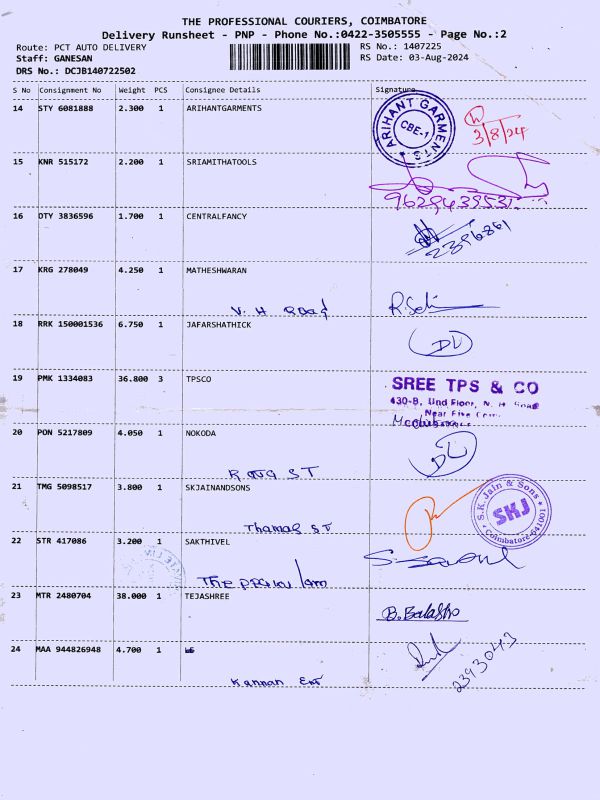 THE PROFESSIONAL COURIERS, COIMBATORE
Delivery Runsheet - PNP - Phone No.:0422-3505555 - Page No.:2
Route: PCT AUTO DELIVERY RS No.: 1407225
Staff: GANESAN RS Date: 03-Aug-2024
DRS No.: DCJB140722502
S No Consignment No Weight PCS Consignee Details Signature
14 STY 6081888 2.300 1 ARIHANTGARMENTS
ARIHANT GARMENTS
CBE-1
3/8/24
15 KNR 515172 2.200 1 SRIAMITHATOOLS
16 OTY 3836596 1.700 1 CENTRALFANCY
2396861
17 KRG 278049 4.250 1 MATHESHWARAN
V. H Road
18 RRK 150001536 6.750 1 JAFARSHATHICK
DU
19 PMK 1334083 36.800 3 TPSCO
SREE TPS & CO
430-B, Und Floor, N. H. Road
Near Five
20 PON 5217809 4.050 1 NOKODA
DU
ST
21 TMG 5098517 3.800 1 SKJAINANDSONS
S.K. Jain & Sons
SKJ
Coimbatore-641001
Thomas ST
22 STR 417086 3.200 1 SAKTHIVEL
23 MTR 2480704 38.000 1 TEJASHREE
24 MAA 944826948 4.700 1
2393043
Kannan Ent